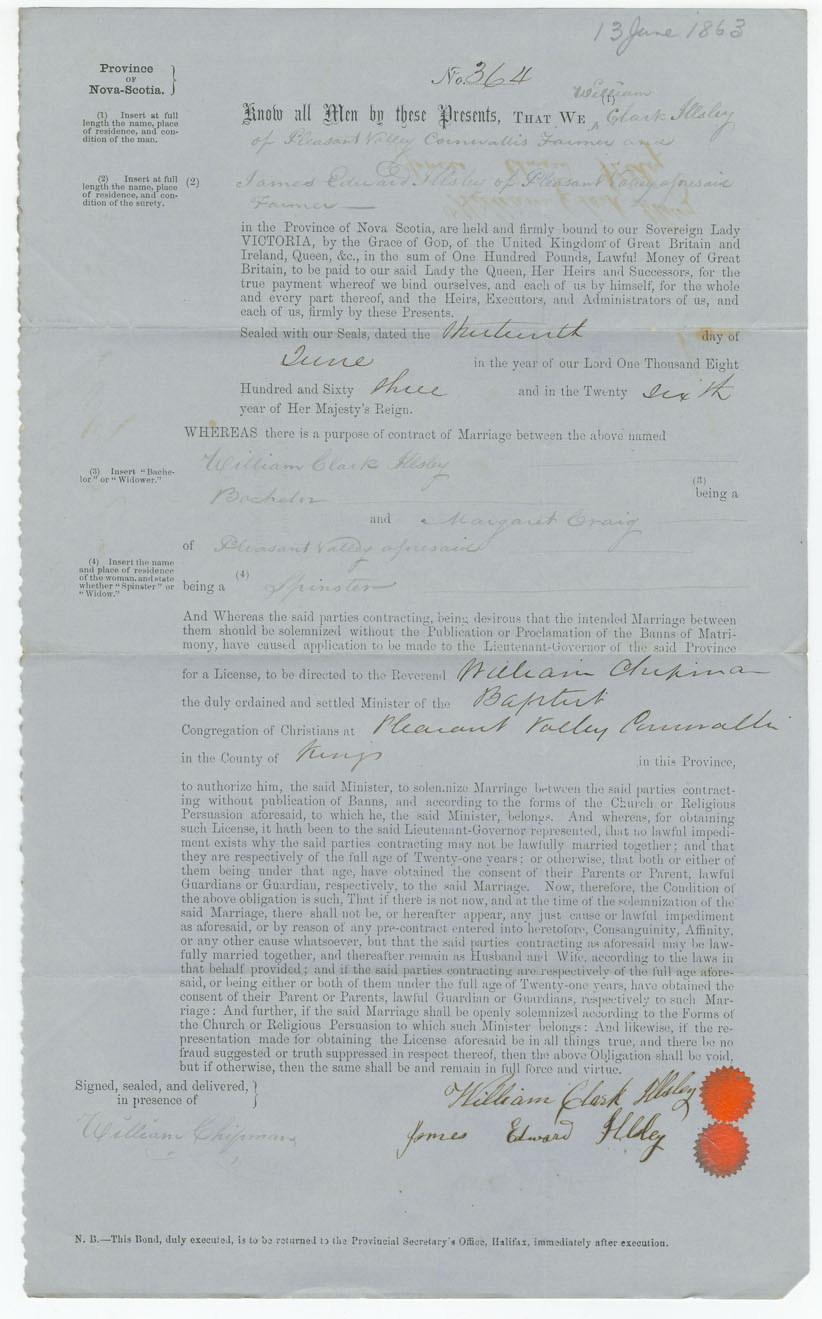 13 June 1863
Province
OF
Nova-Scotia.
No. 364
William
(1)
Know all Men by these Presents, THAT WE ^ Clark Illsley
(1) Insert at full
length the name, place
of residence, and con-
dition of the man.
of Pleasant Valley Cornwallis Farmer and
(2) Insert at full
length the name, place
of residence, and con-
dition of the surety.
(2) James Edward Illsley of Pleasant Valley aforesaid
Farmer
in the Province of Nova Scotia, are held and firmly bound to our Sovereign Lady
VICTORIA, by the Grace of GOD, of the United Kingdom of Great Britain and
Ireland, Queen, &c., in the sum of One Hundred Pounds, Lawful Money of Great
Britain, to be paid to our said Lady the Queen, Her Heirs and Successors, for the
true payment whereof we bind ourselves, and each of us by himself, for the whole
and every part thereof, and the Heirs, Executors, and Administrators of us, and
each of us, firmly by these Presents.
Sealed with our Seals, dated the Thirteenth day of
June in the year of our Lord One Thousand Eight
Hundred and Sixty three and in the Twenty sixth
year of Her Majesty's Reign.
WHEREAS there is a purpose of contract of Marriage between the above named
William Clark Illsley
(3) Insert "Bache-
lor" or "Widower."
(3)
being a
Bachelor
and Margaret Craig
of Pleasant Valley aforesaid
(4) Insert the name
and place of residence
of the woman, and state
whether "Spinster" or
"Widow."
(4)
being a Spinster
And Whereas the said parties contracting, being desirous that the intended Marriage between
them should be solemnized without the Publication or Proclamation of the Banns of Matri-
mony, have caused application to be made to the Lieutenant-Governor of the said Province
for a License, to be directed to the Reverend William Chipman
the duly ordained and settled Minister of the Baptist
Congregation of Christians at Pleasant Valley Cornwallis
in the County of Kings in this Province,
to authorize him, the said Minister, to solemnize Marriage between the said parties contract-
ing without publication of Banns, and according to the forms of the Church or Religious
Persuasion aforesaid, to which he, the said Minister, belongs. And whereas, for obtaining
such License, it hath been to the said Lieutenant-Governor represented, that no lawful impedi-
ment exists why the said parties contracting may not be lawfully married together; and that
they are respectively of the full age of Twenty-one years; or otherwise, that both or either of
them being under that age, have obtained the consent of their Parents or Parent, lawful
Guardians or Guardian, respectively, to the said Marriage. Now, therefore, the Condition of
the above obligation is such, That if there is not now, and at the time of the solemnization of the
said Marriage, there shall not be, or hereafter appear, any just cause or lawful impediment
as aforesaid, or by reason of any pre-contract entered into heretofore, Consanguinity, Affinity,
or any other cause whatsoever, but that the said parties contracting as aforesaid may be law-
fully married together, and thereafter remain as Husband and Wife, according to the laws in
that behalf provided; and if the said parties contracting are respectively of the full age afore-
said, or being either or both of them under the full age of Twenty-one years, have obtained the
consent of their Parent or Parents, lawful Guardian or Guardians, respectively to such Mar-
riage: And further, if the said Marriage shall be openly solemnized according to the Forms of
the Church or Religious Persuasion to which such Minister belongs: And likewise, if the re-
presentation made for obtaining the License aforesaid be in all things true, and there be no
fraud suggested or truth suppressed in respect thereof, then the above Obligation shall be void,
but if otherwise, then the same shall be and remain in full force and virtue.
Signed, sealed, and delivered,
in presence of
William Clark Illsley
William Chipman
James Edward Illsley
N. B.—This Bond, duly executed, is to be returned to the Provincial Secretary's Office, Halifax, immediately after execution.